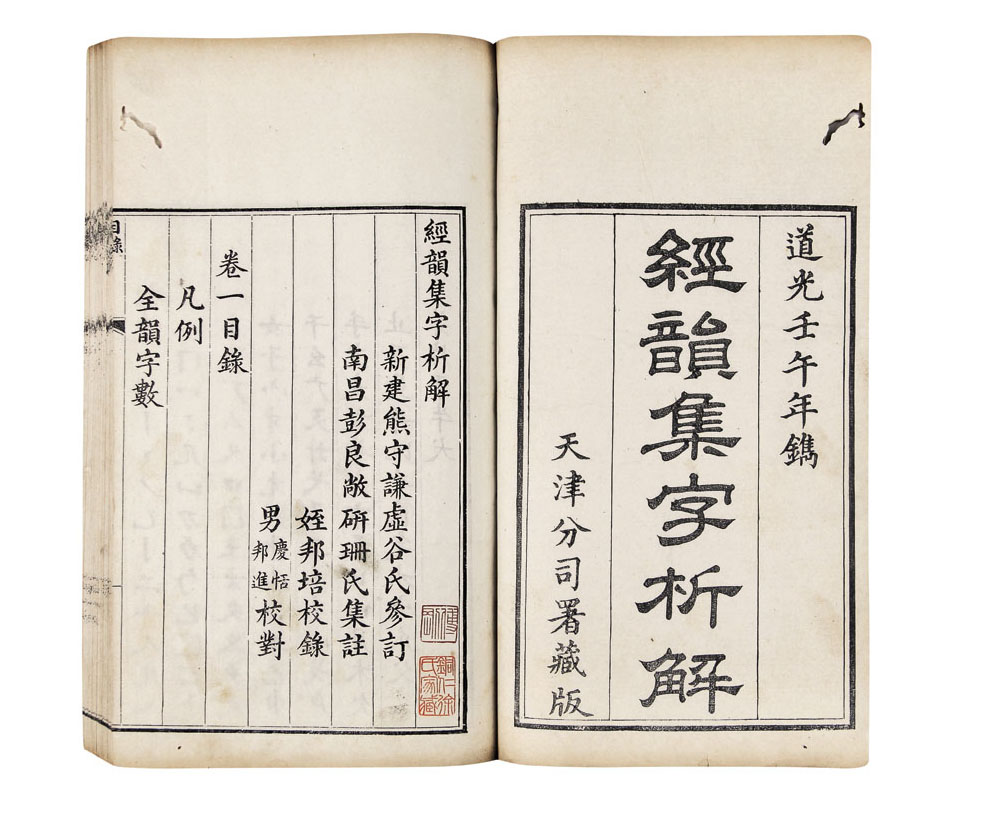 道光壬午年鐫
經韻集字析解
天津分司署藏版
經韻集字析解
新建熊守謙虛谷氏參訂
南昌彭良敞硏珊氏集註
姪邦培校錄
男慶恬邦進校對
卷一目錄
凡例
全韻字數
目錄
銅仁徐氏家藏